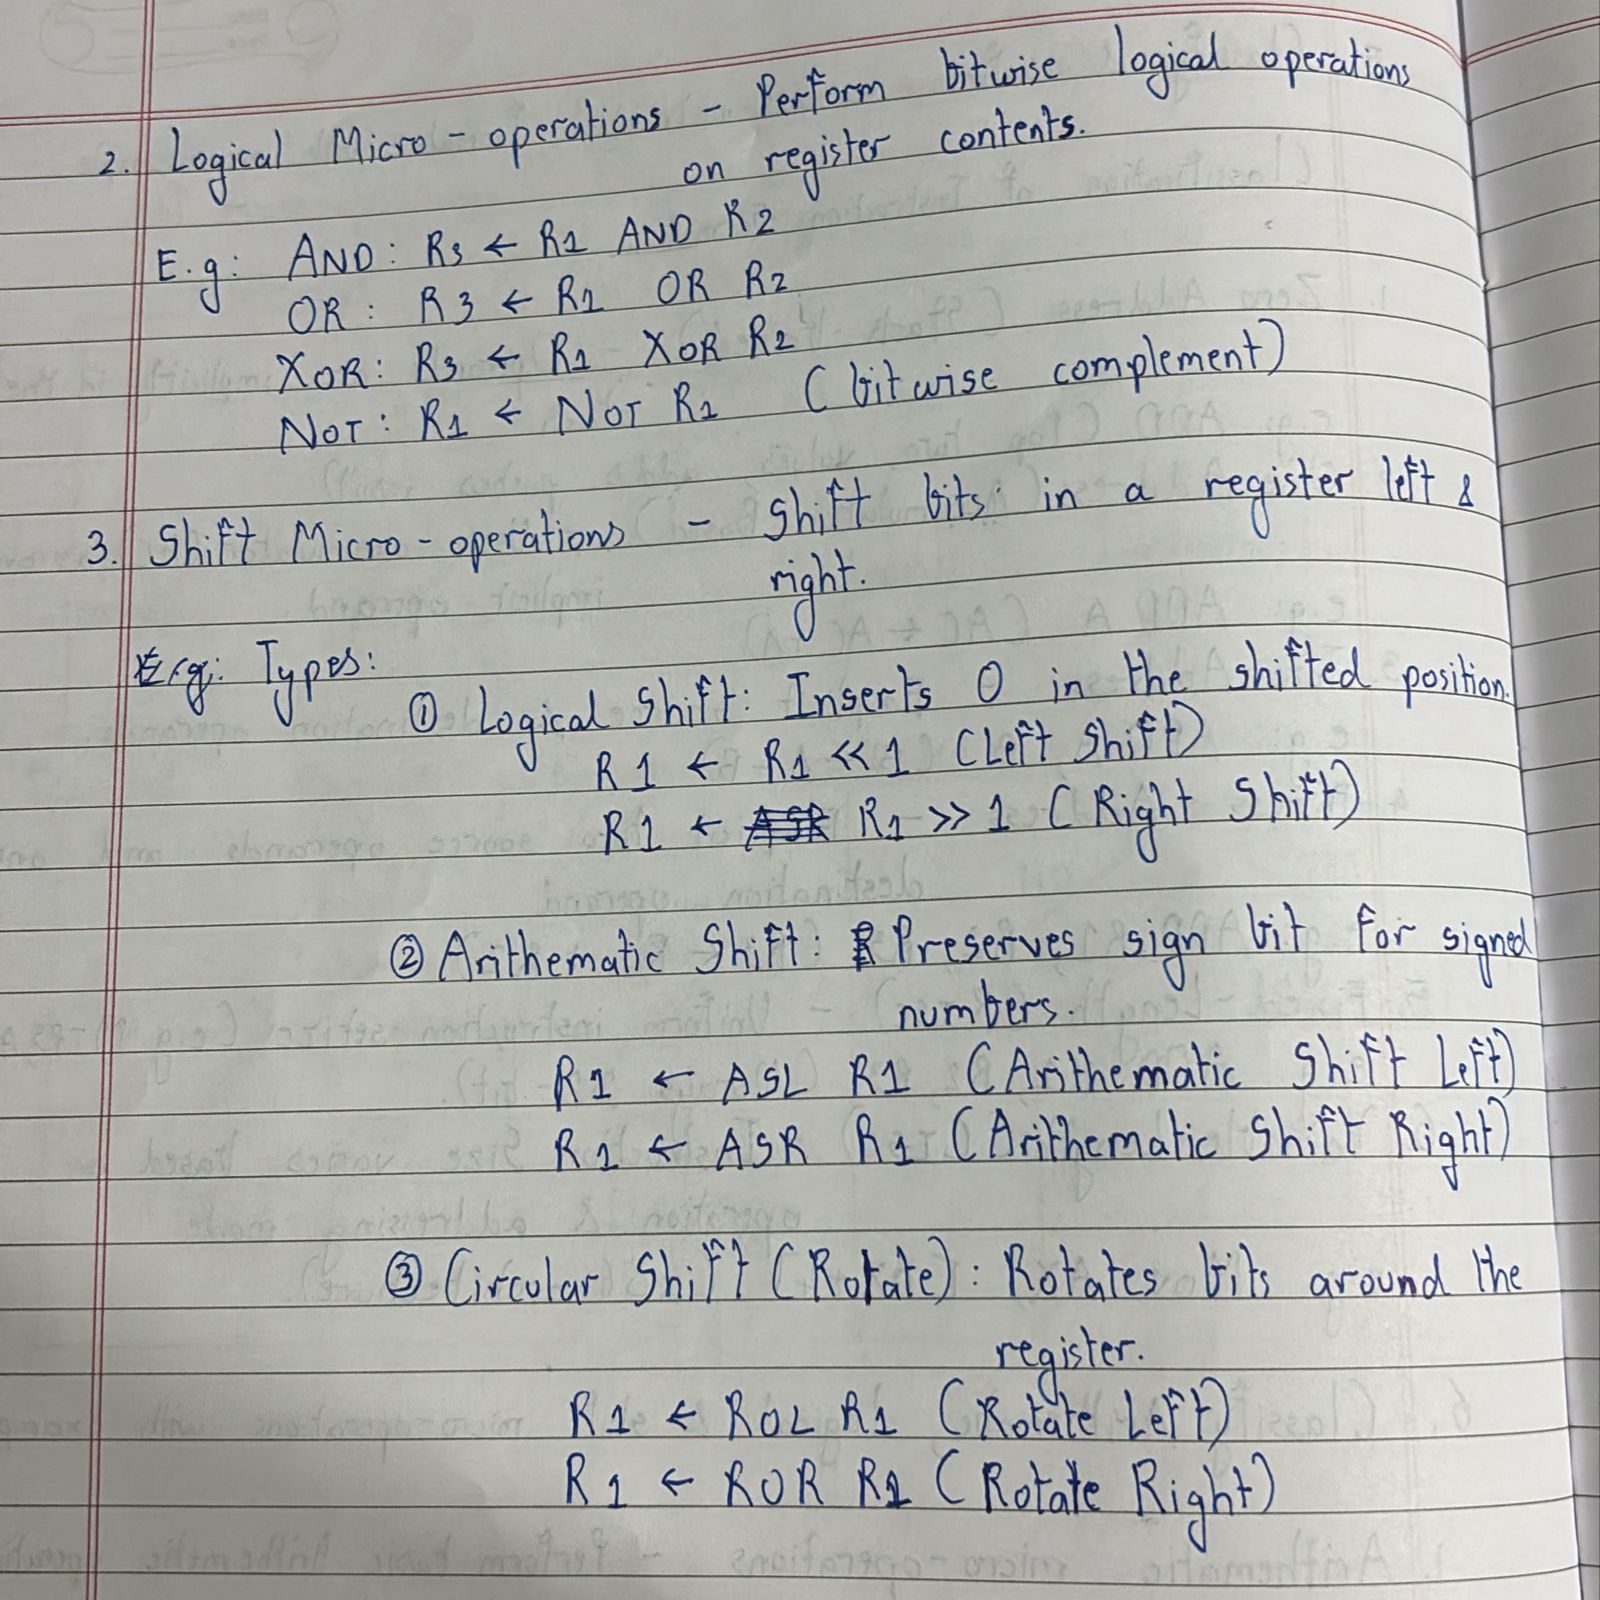 2. Logical Micro-operations - Perform bitwise logical operations
on register contents.
E.g: AND: R3 ← R1 AND R2
OR: R3 ← R1 OR R2
XOR: R3 ← R1 XOR R2
NOT: R1 ← NOT R1 (bitwise complement)
3. Shift Micro-operations - Shift bits in a register left &
right.
E.g: Types:
① Logical Shift: Inserts 0 in the shifted position.
R1 ← R1 << 1 (Left Shift)
R1 ← ASR R1 >> 1 (Right Shift)
② Arithematic Shift: Preserves sign bit for signed
numbers.
R1 ← ASL R1 (Arithematic Shift Left)
R1 ← ASR R1 (Arithematic Shift Right)
③ Circular Shift (Rotate): Rotates bits around the
register.
R1 ← ROL R1 (Rotate Left)
R1 ← ROR R1 (Rotate Right)